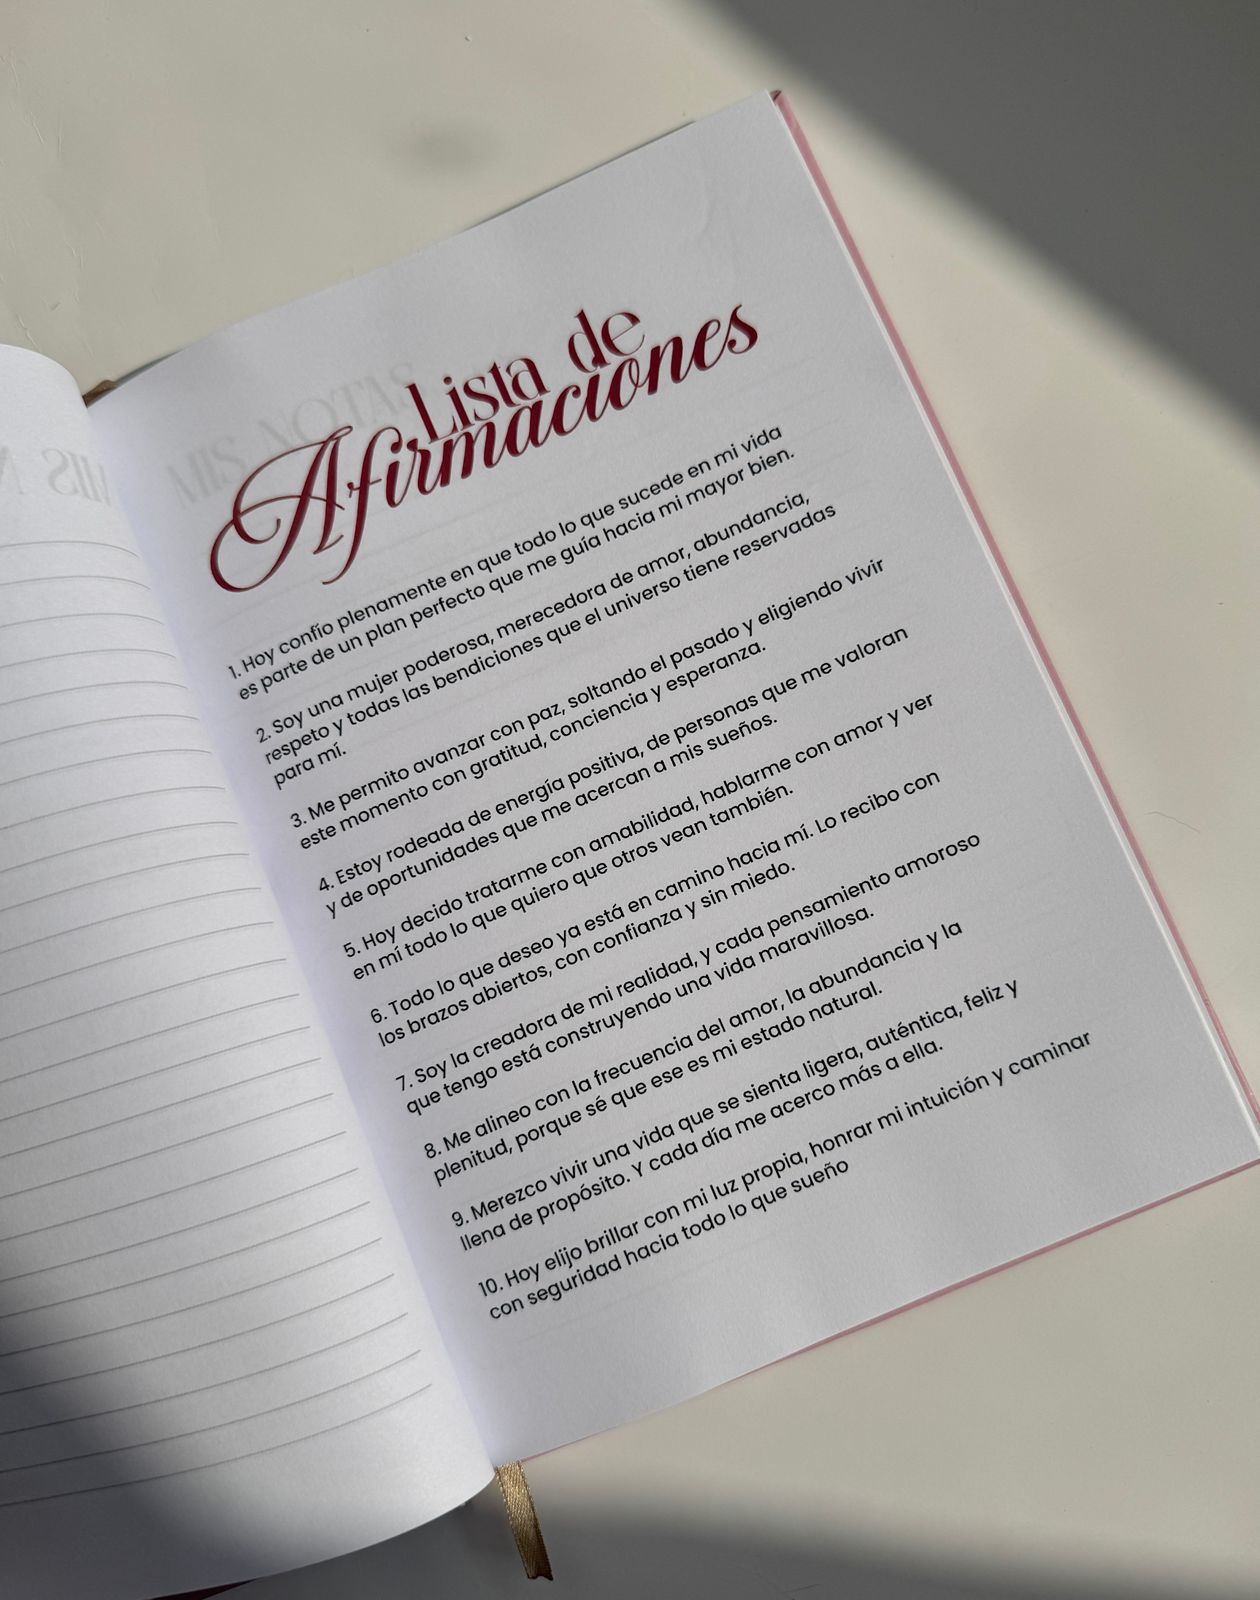 MIS NOTAS
Lista de
Afirmaciones
1. Hoy confío plenamente en que todo lo que sucede en mi vida
es parte de un plan perfecto que me guía hacia mi mayor bien.
2. Soy una mujer poderosa, merecedora de amor, abundancia,
respeto y todas las bendiciones que el universo tiene reservadas
para mí.
3. Me permito avanzar con paz, soltando el pasado y eligiendo vivir
este momento con gratitud, conciencia y esperanza.
4. Estoy rodeada de energía positiva, de personas que me valoran
y de oportunidades que me acercan a mis sueños.
5. Hoy decido tratarme con amabilidad, hablarme con amor y ver
en mí todo lo que quiero que otros vean también.
6. Todo lo que deseo ya está en camino hacia mí. Lo recibo con
los brazos abiertos, con confianza y sin miedo.
7. Soy la creadora de mi realidad, y cada pensamiento amoroso
que tengo está construyendo una vida maravillosa.
8. Me alineo con la frecuencia del amor, la abundancia y la
plenitud, porque sé que ese es mi estado natural.
9. Merezco vivir una vida que se sienta ligera, auténtica, feliz y
llena de propósito. Y cada día me acerco más a ella.
10. Hoy elijo brillar con mi luz propia, honrar mi intuición y caminar
con seguridad hacia todo lo que sueño